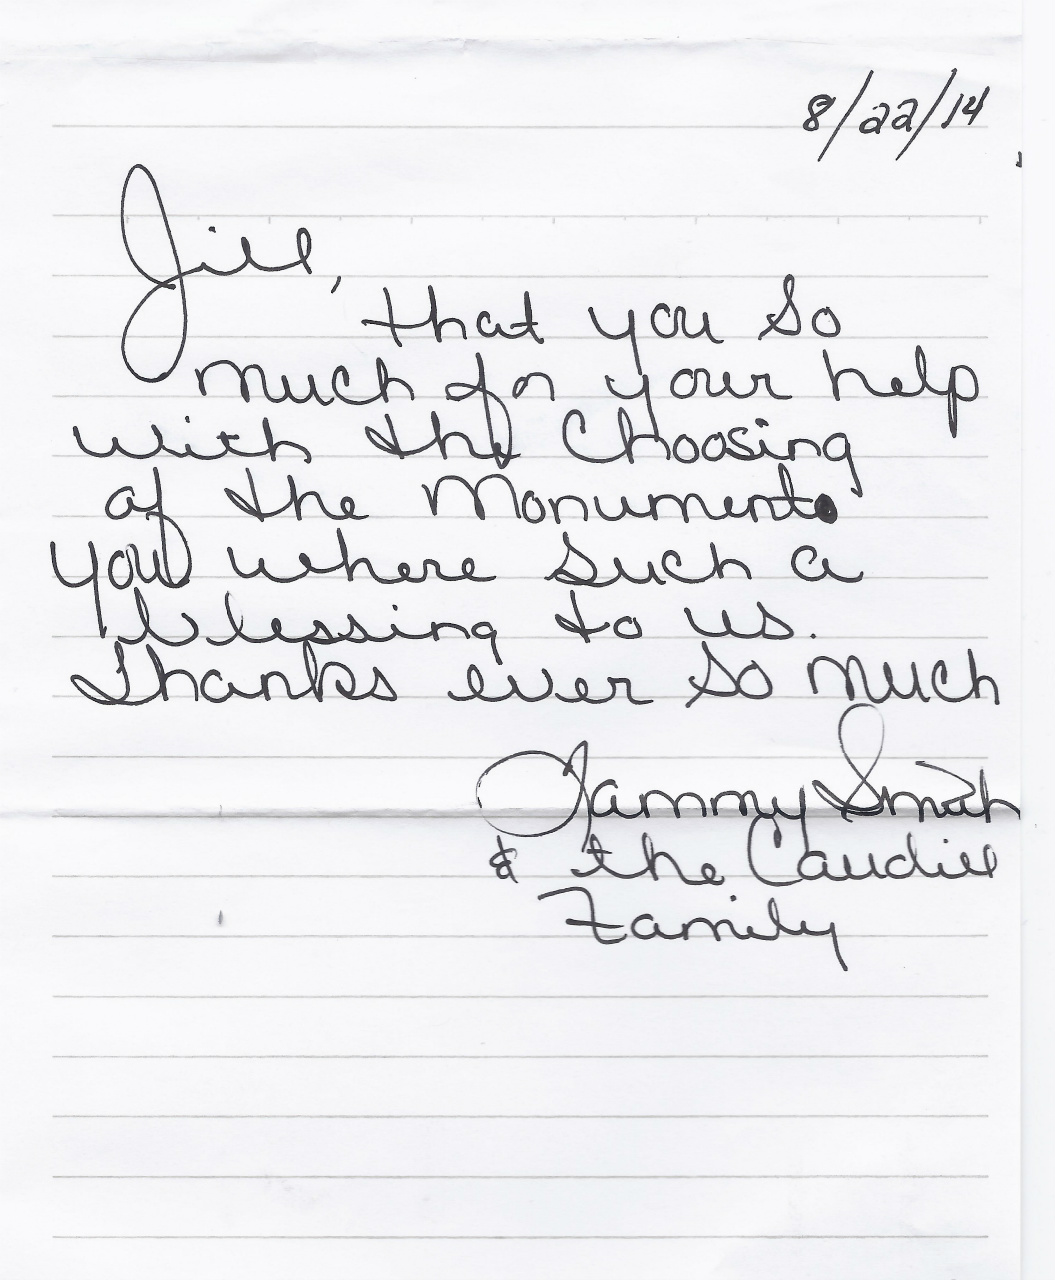 8/22/14
Jill,
that you so
much for your help
with the Choosing
of the Monument.
You where such a
blessing to us.
Thanks ever so much
Tammy Smith
& the Caudill
Family